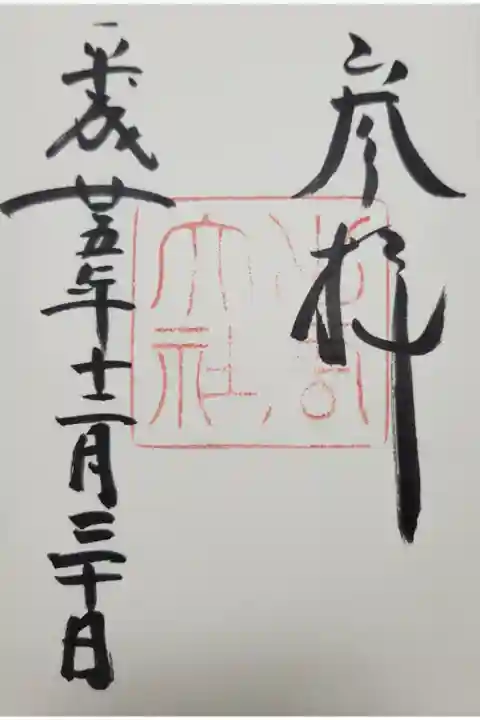 参拝
大社
平成廿五年十二月三十日